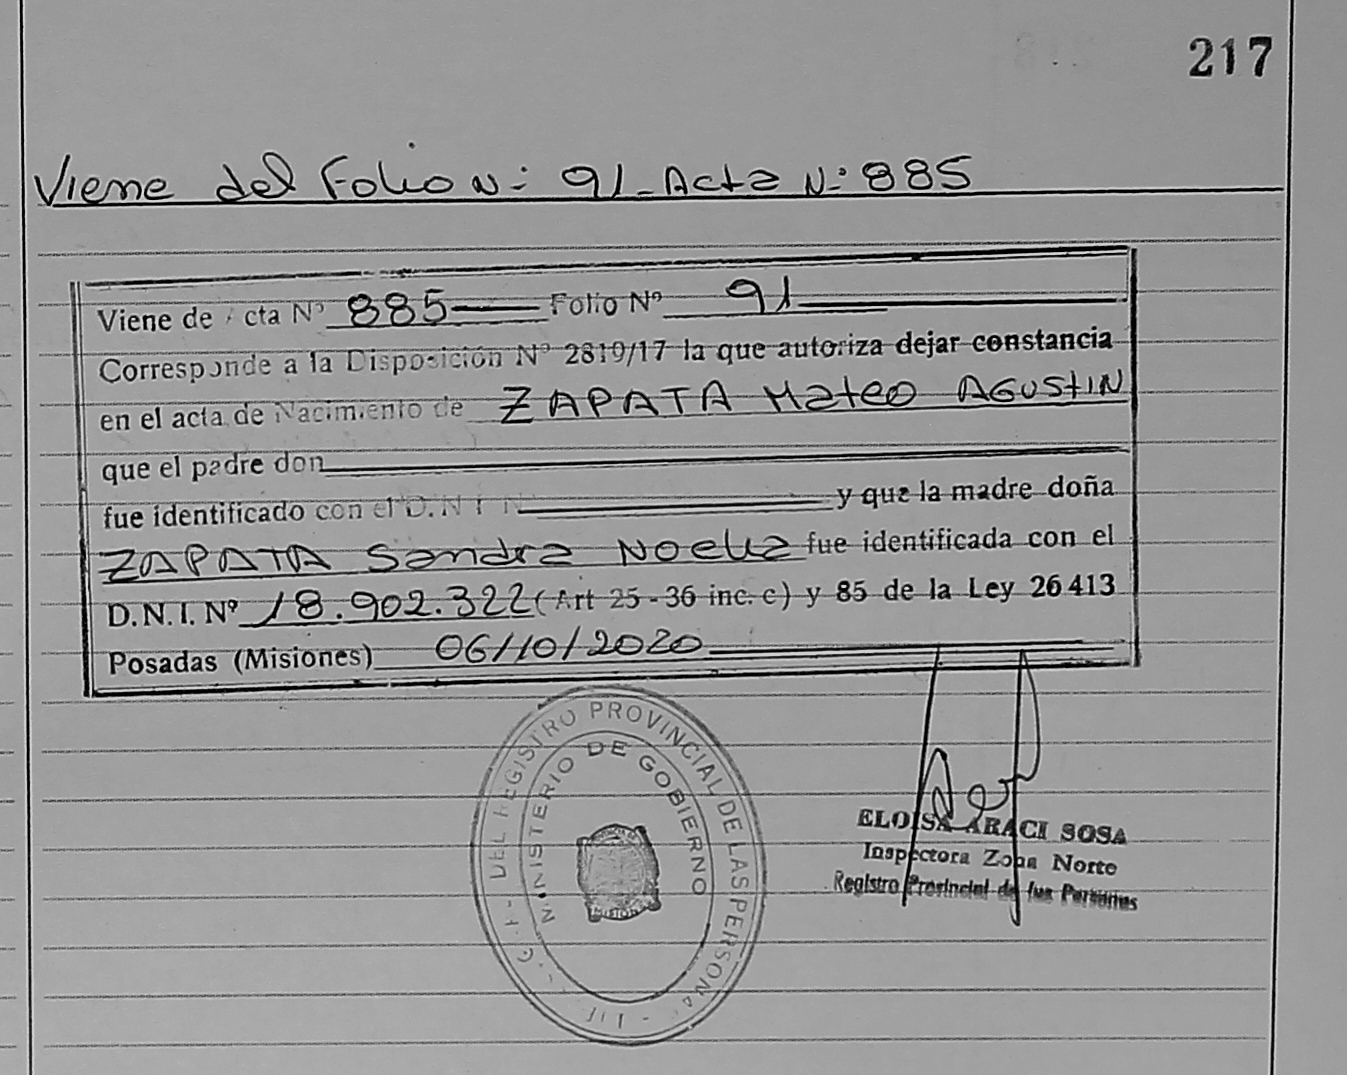 217
Viene del Folio N: 91 - Acta N.º 885
Viene de cta Nº 885 Folio Nº 91
Corresponde a la Disposición Nº 2819/17 la que autoriza dejar constancia
en el acta de Nacimiento de ZAPATA Mateo AGUSTIN
que el padre don
fue identificado con el D.N.I. N y que la madre doña
ZAPATA Sandra Noelia fue identificada con el
D.N.I. Nº 18.902.322 (Art 25 - 36 inc. c) y 85 de la Ley 26413
Posadas (Misiones) 06/10/2020
DEL REGISTRO PROVINCIAL DE LAS PERSONAS
MINISTERIO DE GOBIERNO
ELOISA ARACI SOSA
Inspectora Zona Norte
Registro Provincial de las Personas